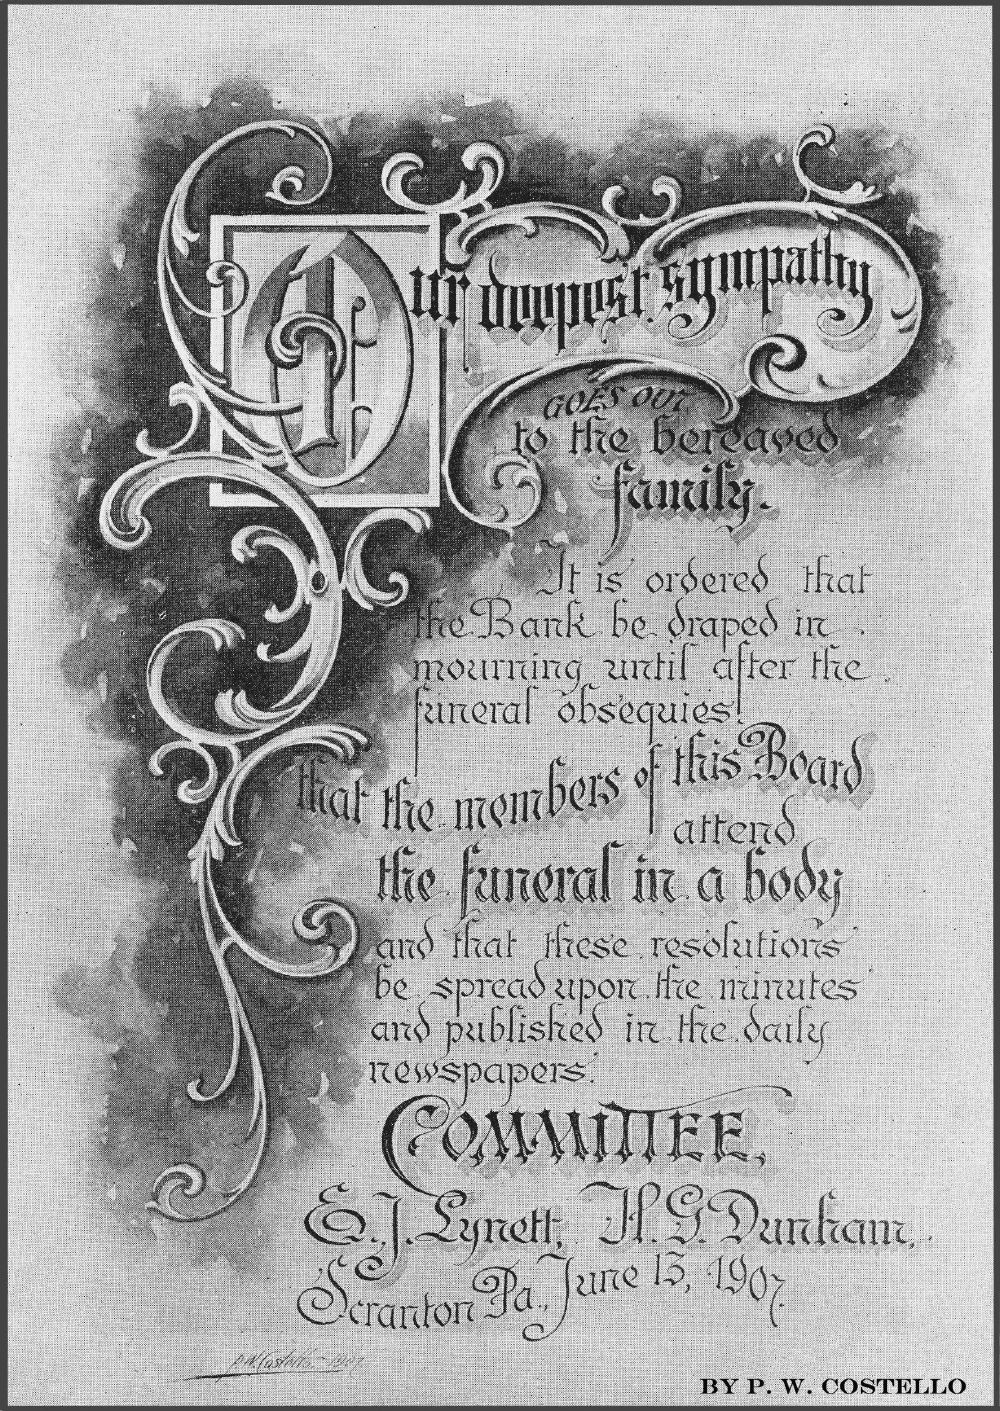 Our deepest sympathy
goes out
to the bereaved
family.
It is ordered that
the Bank be draped in
mourning until after the
funeral obsequies.
that the members of this Board
attend
the funeral in a body
and that these resolutions
be spread upon the minutes
and published in the daily
newspapers.
COMMITTEE.
E. J. Lynett, H. G. Dunham,
Scranton Pa., June 13, 1907.
P. W. Costello 1907
BY P. W. COSTELLO